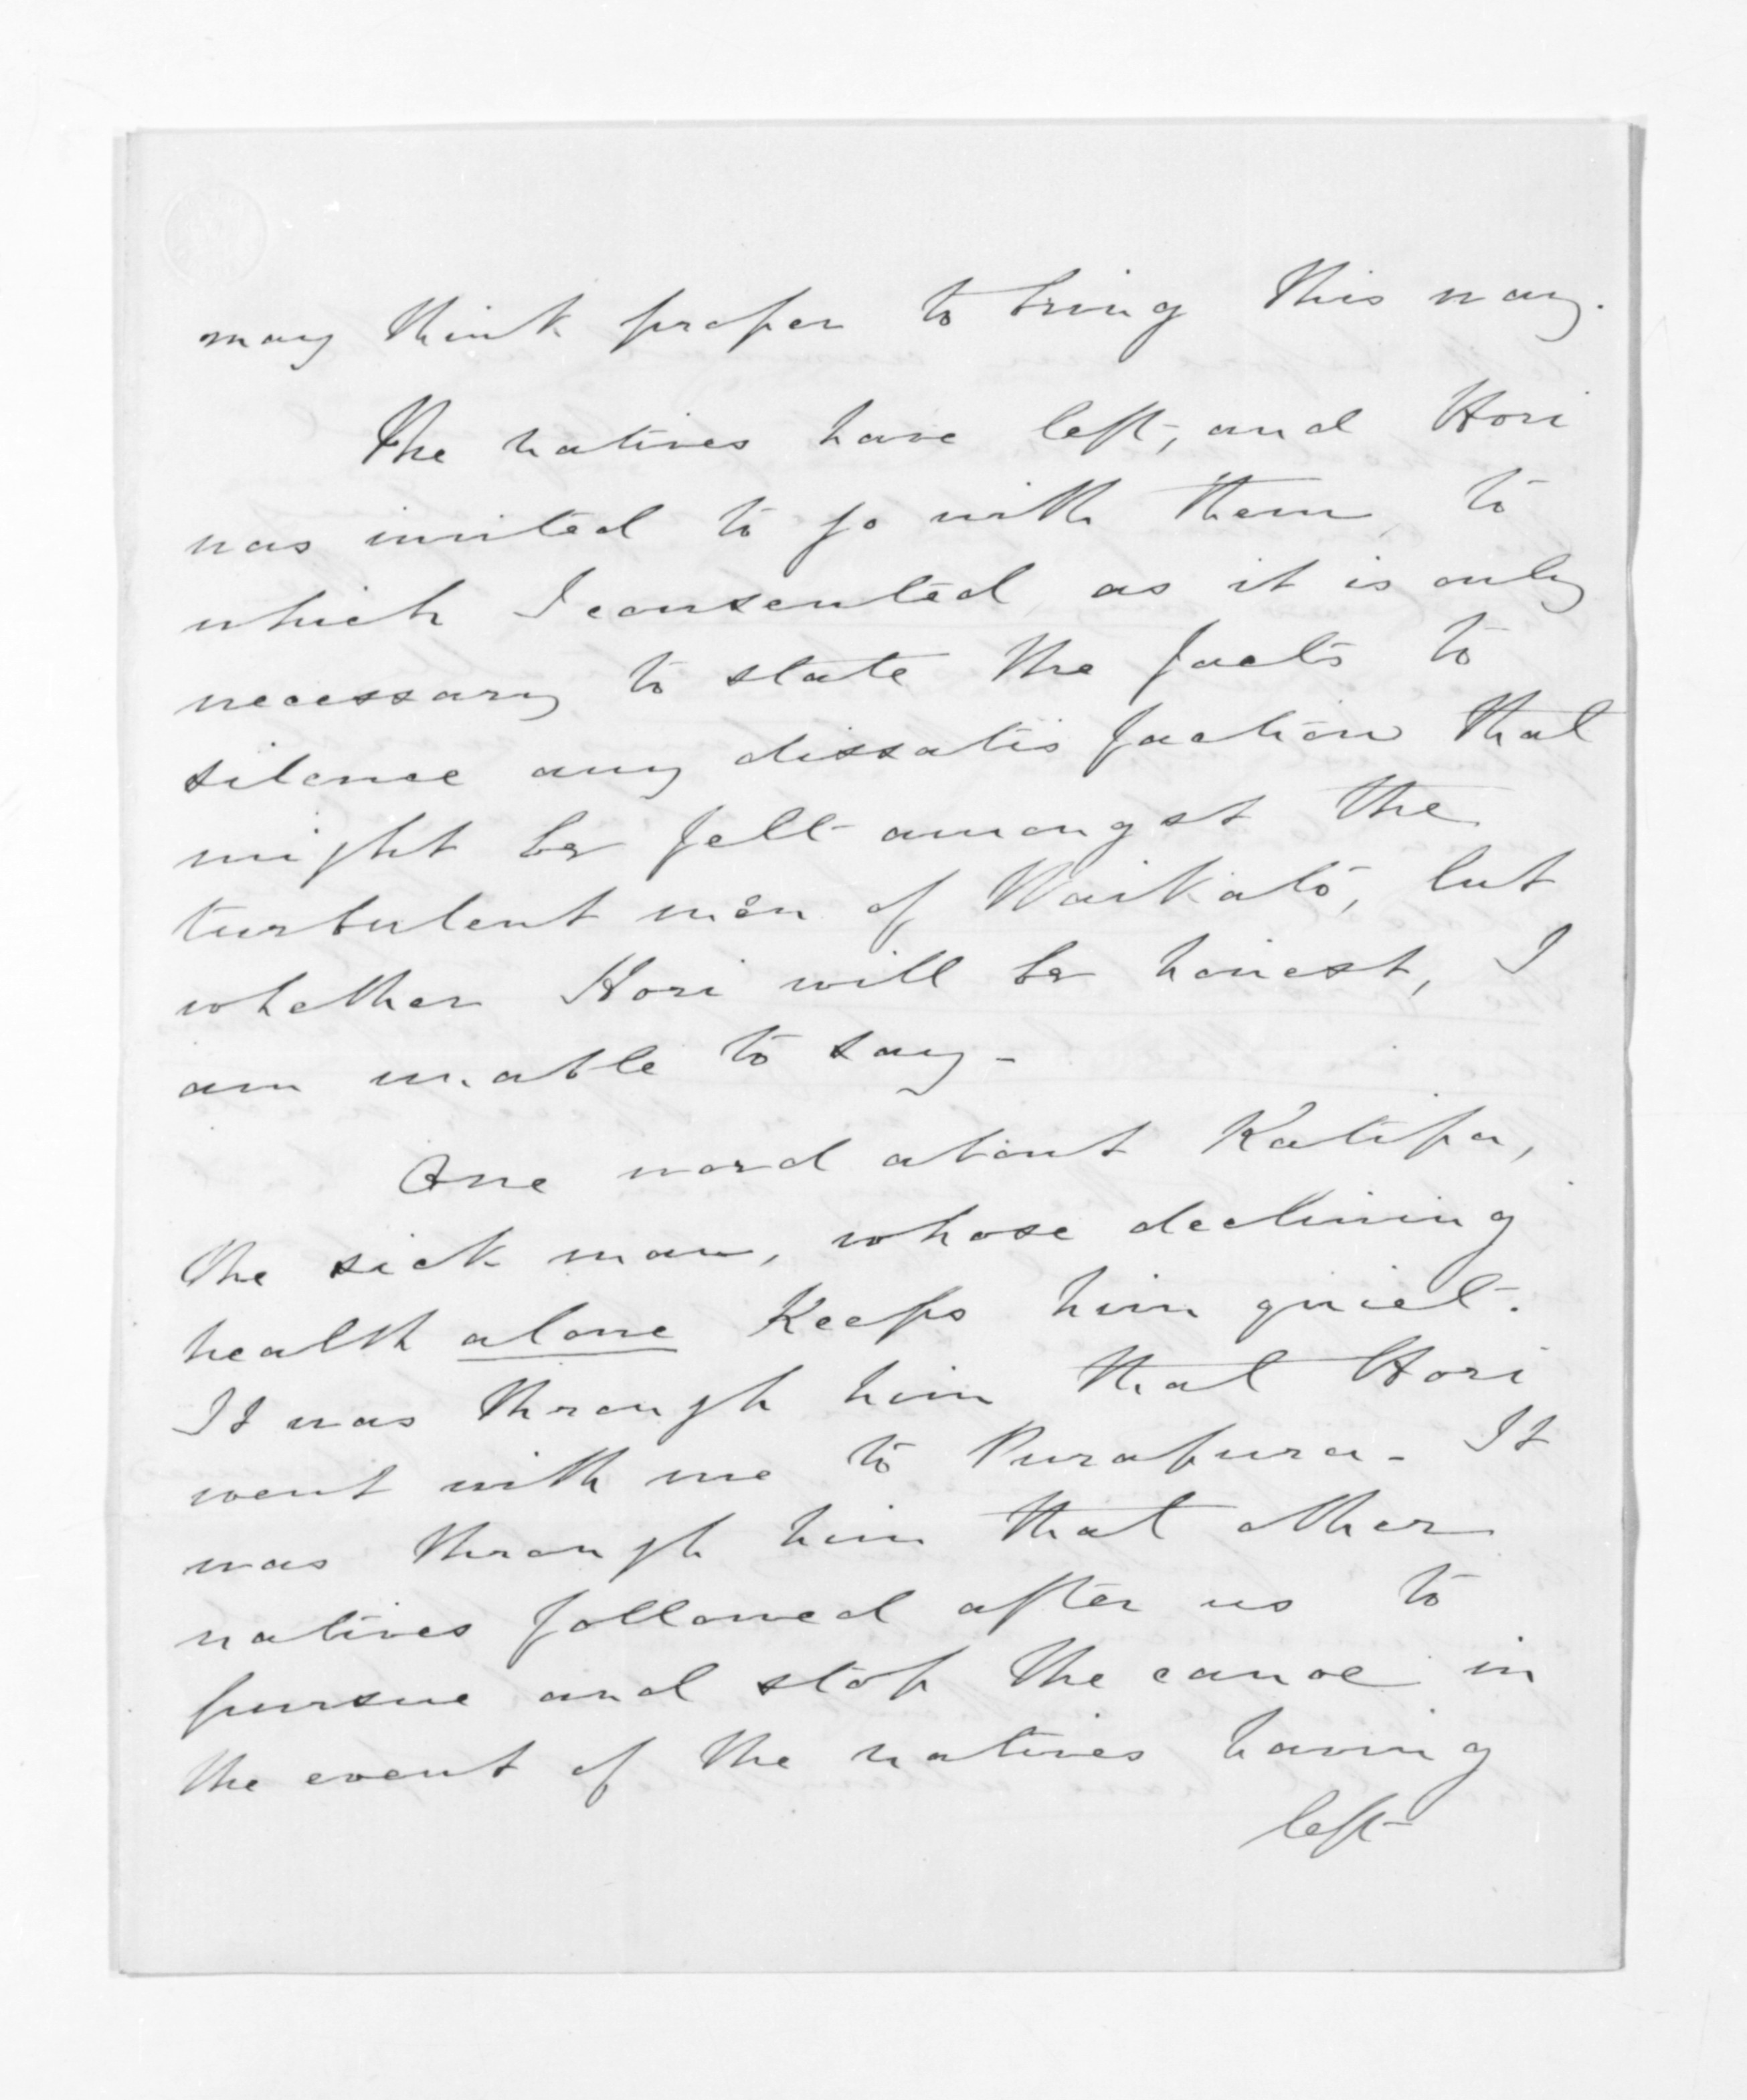 may think proper to bring this way.
The natives have left, and Hori
was invited to go with them, to
which I consented, as it is only
necessary to state the facts to
silence any dissatisfaction that
might be felt amongst the
turbulent men of Waikato, but
whether Hori will be honest, I
am unable to say -
One word about Katipa,
the sick man, whose declining
health alone keeps him quiet.
It was through him that Hori
went with me to Purapura - It
was through him that other
natives followed after us to
pursue and stop the canoe in
the event of the natives having
left